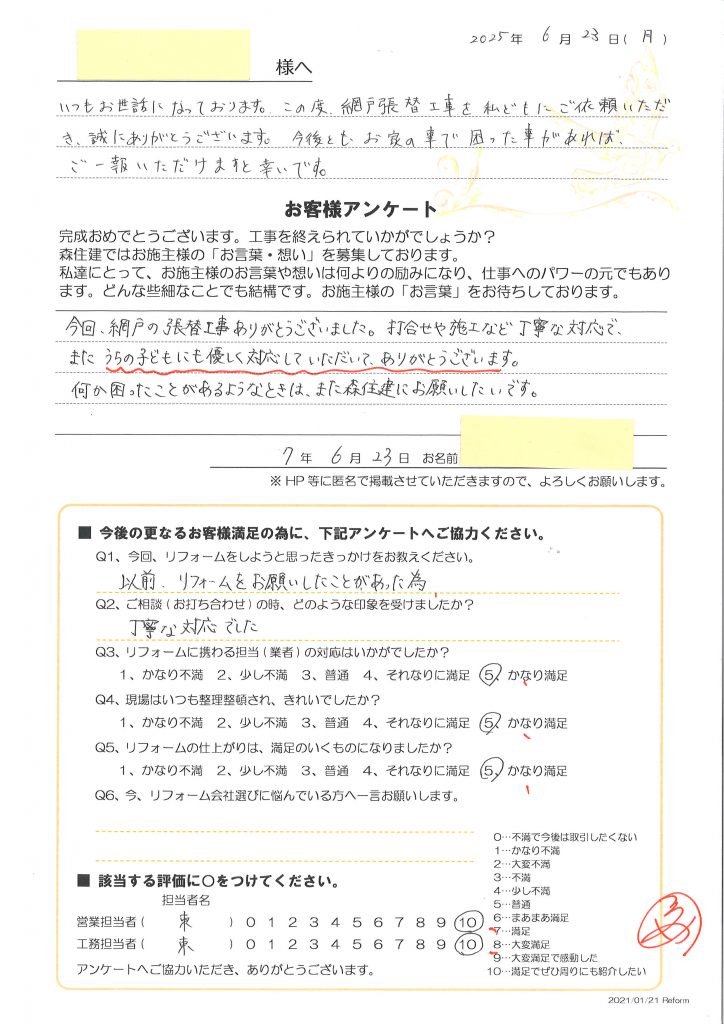 2025年 6月 23日(月)
様へ
いつもお世話になっております。この度、網戸張替工事を私どもにご依頼いただ
き、誠にありがとうございます。今後とも、お家の事で困った事があれば、
ご一報いただけますと幸いです。
お客様アンケート
完成おめでとうございます。工事を終えられていかがでしょうか?
森住建ではお施主様の「お言葉・想い」を募集しております。
私達にとって、お施主様のお言葉や想いは何よりの励みになり、仕事へのパワーの元でもあり
ます。どんな些細なことでも結構です。お施主様の「お言葉」をお待ちしております。
今回、網戸の張替工事ありがとうございました。打合せや施工など丁寧な対応で、
また うちの子どもにも優しく対応していただいて、ありがとうございます。
何か困ったことがあるようなときは、また森住建にお願いしたいです。
7年 6月 23日 お名前
※HP等に匿名で掲載させていただきますので、よろしくお願いします。
■ 今後の更なるお客様満足の為に、下記アンケートへご協力ください。
Q1、今回、リフォームをしようと思ったきっかけをお教えください。
以前、リフォームをお願いしたことがあった為
Q2、ご相談(お打ち合わせ)の時、どのような印象を受けましたか?
丁寧な対応でした
Q3、リフォームに携わる担当(業者)の対応はいかがでしたか?
1、かなり不満 2、少し不満 3、普通 4、それなりに満足 5、かなり満足
Q4、現場はいつも整理整頓され、きれいでしたか?
1、かなり不満 2、少し不満 3、普通 4、それなりに満足 5、かなり満足
Q5、リフォームの仕上がりは、満足のいくものになりましたか?
1、かなり不満 2、少し不満 3、普通 4、それなりに満足 5、かなり満足
Q6、今、リフォーム会社選びに悩んでいる方へ一言お願いします。
0…不満で今後は取引したくない
1…かなり不満
2…大変不満
3…不満
4…少し不満
5…普通
6…まあまあ満足
7…満足
8…大変満足
9…大変満足で感動した
10…満足でぜひ周りにも紹介したい
■ 該当する評価に○をつけてください。
担当者名
営業担当者( 東 ) 0 1 2 3 4 5 6 7 8 9 10
工務担当者( 東 ) 0 1 2 3 4 5 6 7 8 9 10
アンケートへご協力いただき、ありがとうございます。
2021/01/21 Reform